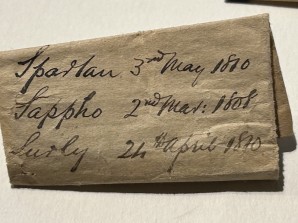 Spartan 3rd May 1810
Sappho 2nd Mar: 1808
Surly 24th April 1810